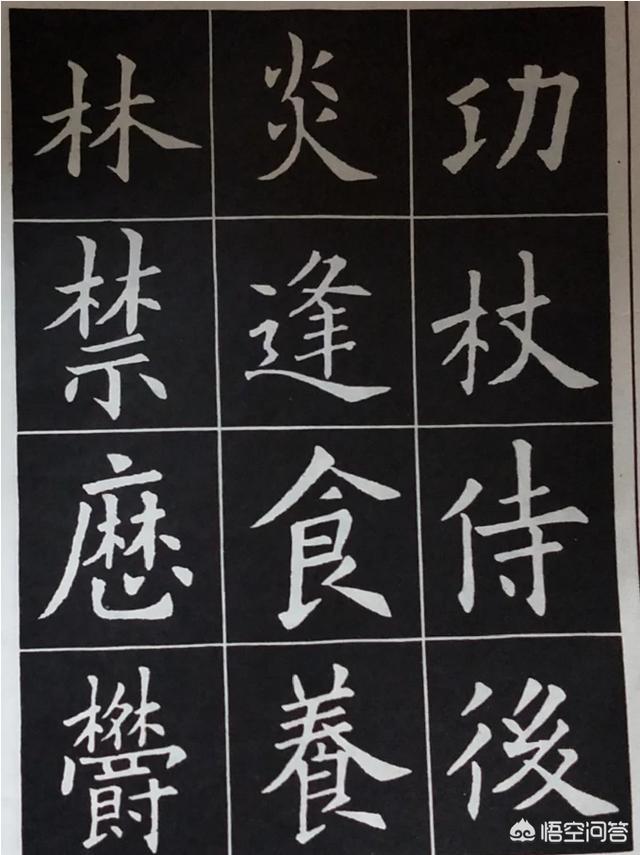 功杖侍後
炎逢食養
林禁欝
悟空问答